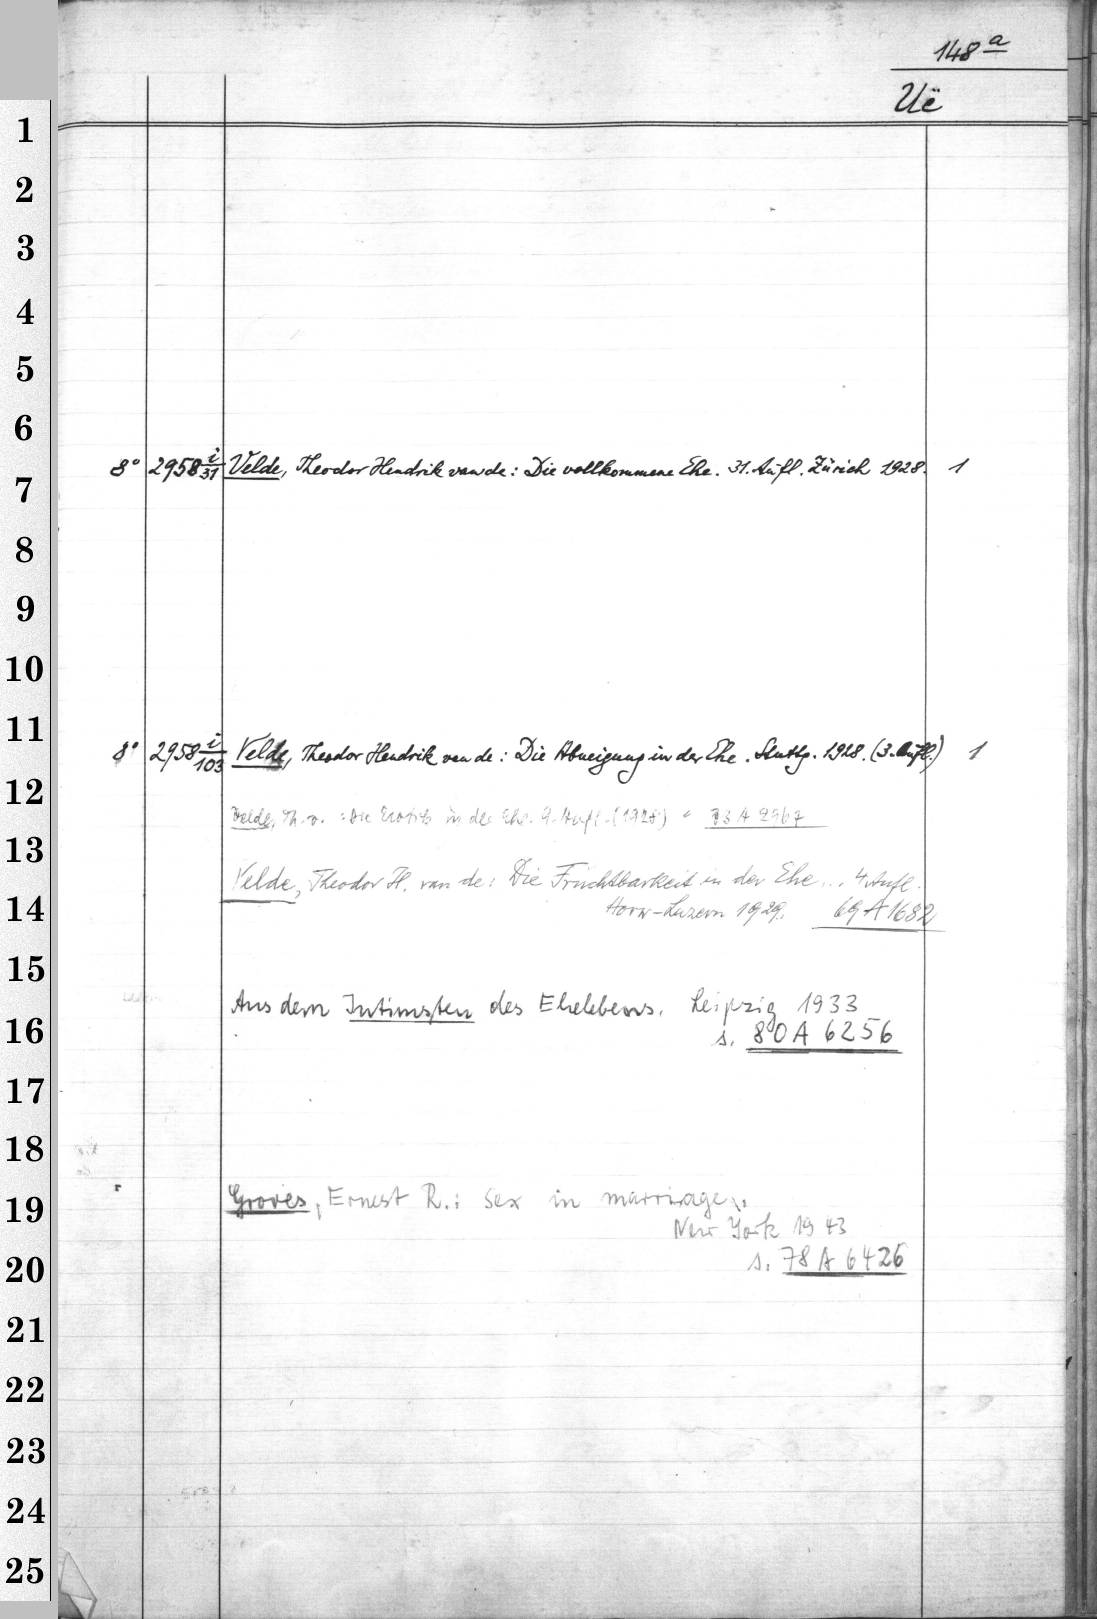 148 a
Uë
1
2
3
4
5
6
8° 2958 i/31 Velde, Theodor Hendrik van de: Die vollkommene Ehe. 31. Aufl. Zürich 1928. 1
7
8
9
10
11
8° 2958 i/103 Velde, Theodor Hendrik van de: Die Abneigung in der Ehe. Stuttg. 1928. (3. Aufl.) 1
12
Velde, Th. v. : Die Erotik in der Ehe. 9. Aufl. (1928) 73 A 2967
13
Velde, Theodor H. van de: Die Fruchtbarkeit in der Ehe... 4. Aufl.
14 Horw-Luzern 1929. 69 A 1682
15
Aus dem Intimsten des Ehelebens. Leipzig 1933
16 s. 80 A 6256
17
18
19 Groves, Ernest R.: Sex in marriage..
New York 1943
20 s. 78 A 6426
21
22
23
24
25